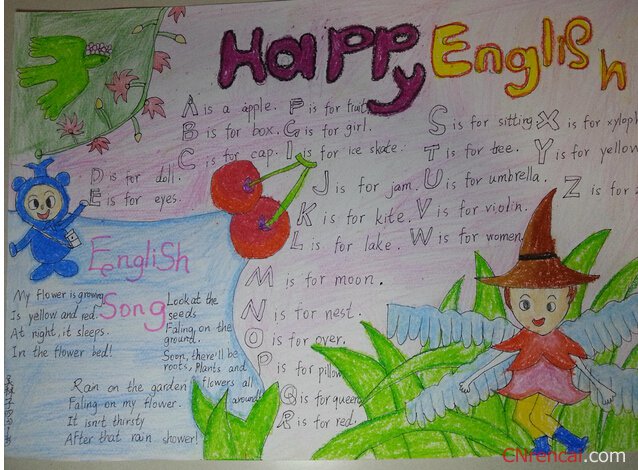 Happy English
A is a apple.
B is for box.
C is for cap.
D is for doll.
E is for eyes.
F is for fruit.
G is for girl.
I is for ice skate.
J is for jam.
K is for kite.
L is for lake.
M is for moon.
N is for nest.
O is for over.
P is for pillow
Q is for queen
R is for red.
S is for sitting
T is for tree.
U is for umbrella.
V is for violin.
W is for women.
X is for xyloph
Y is for yellow
Z is for
English
Song
My flower is growing
Is yellow and red.
At night, it sleeps.
In the flower bed!
Look at the
seeds
Faling, on the
ground.
Soon, there'll be
roots, Plants and
flowers all
around!
Rain on the garden
Faling on my flower.
It isn't thirsty
After that rain shower!
CNrencai.com